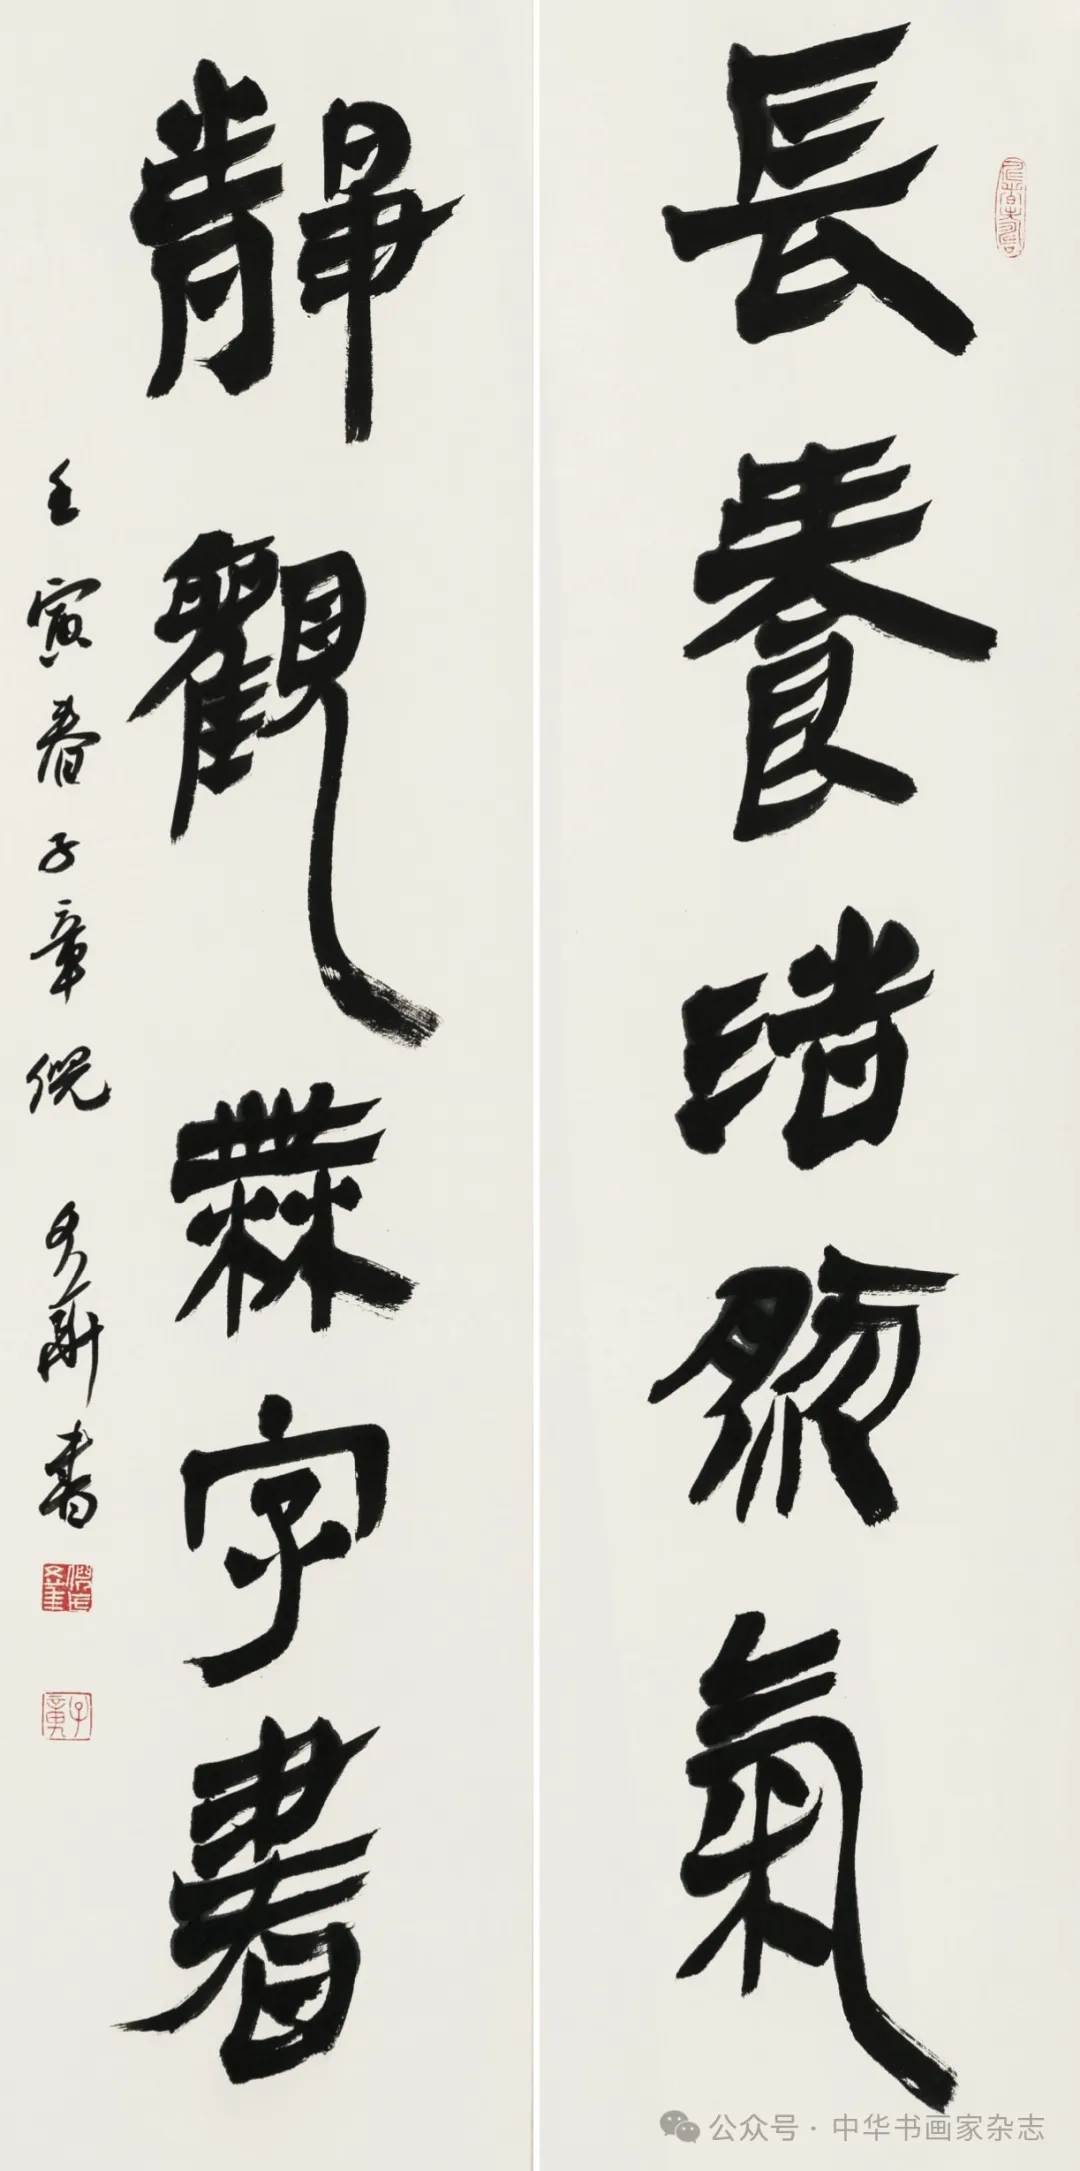 長養浩然氣
靜觀無字書
壬寅春子章倪文華書
公众号·中华书画家杂志